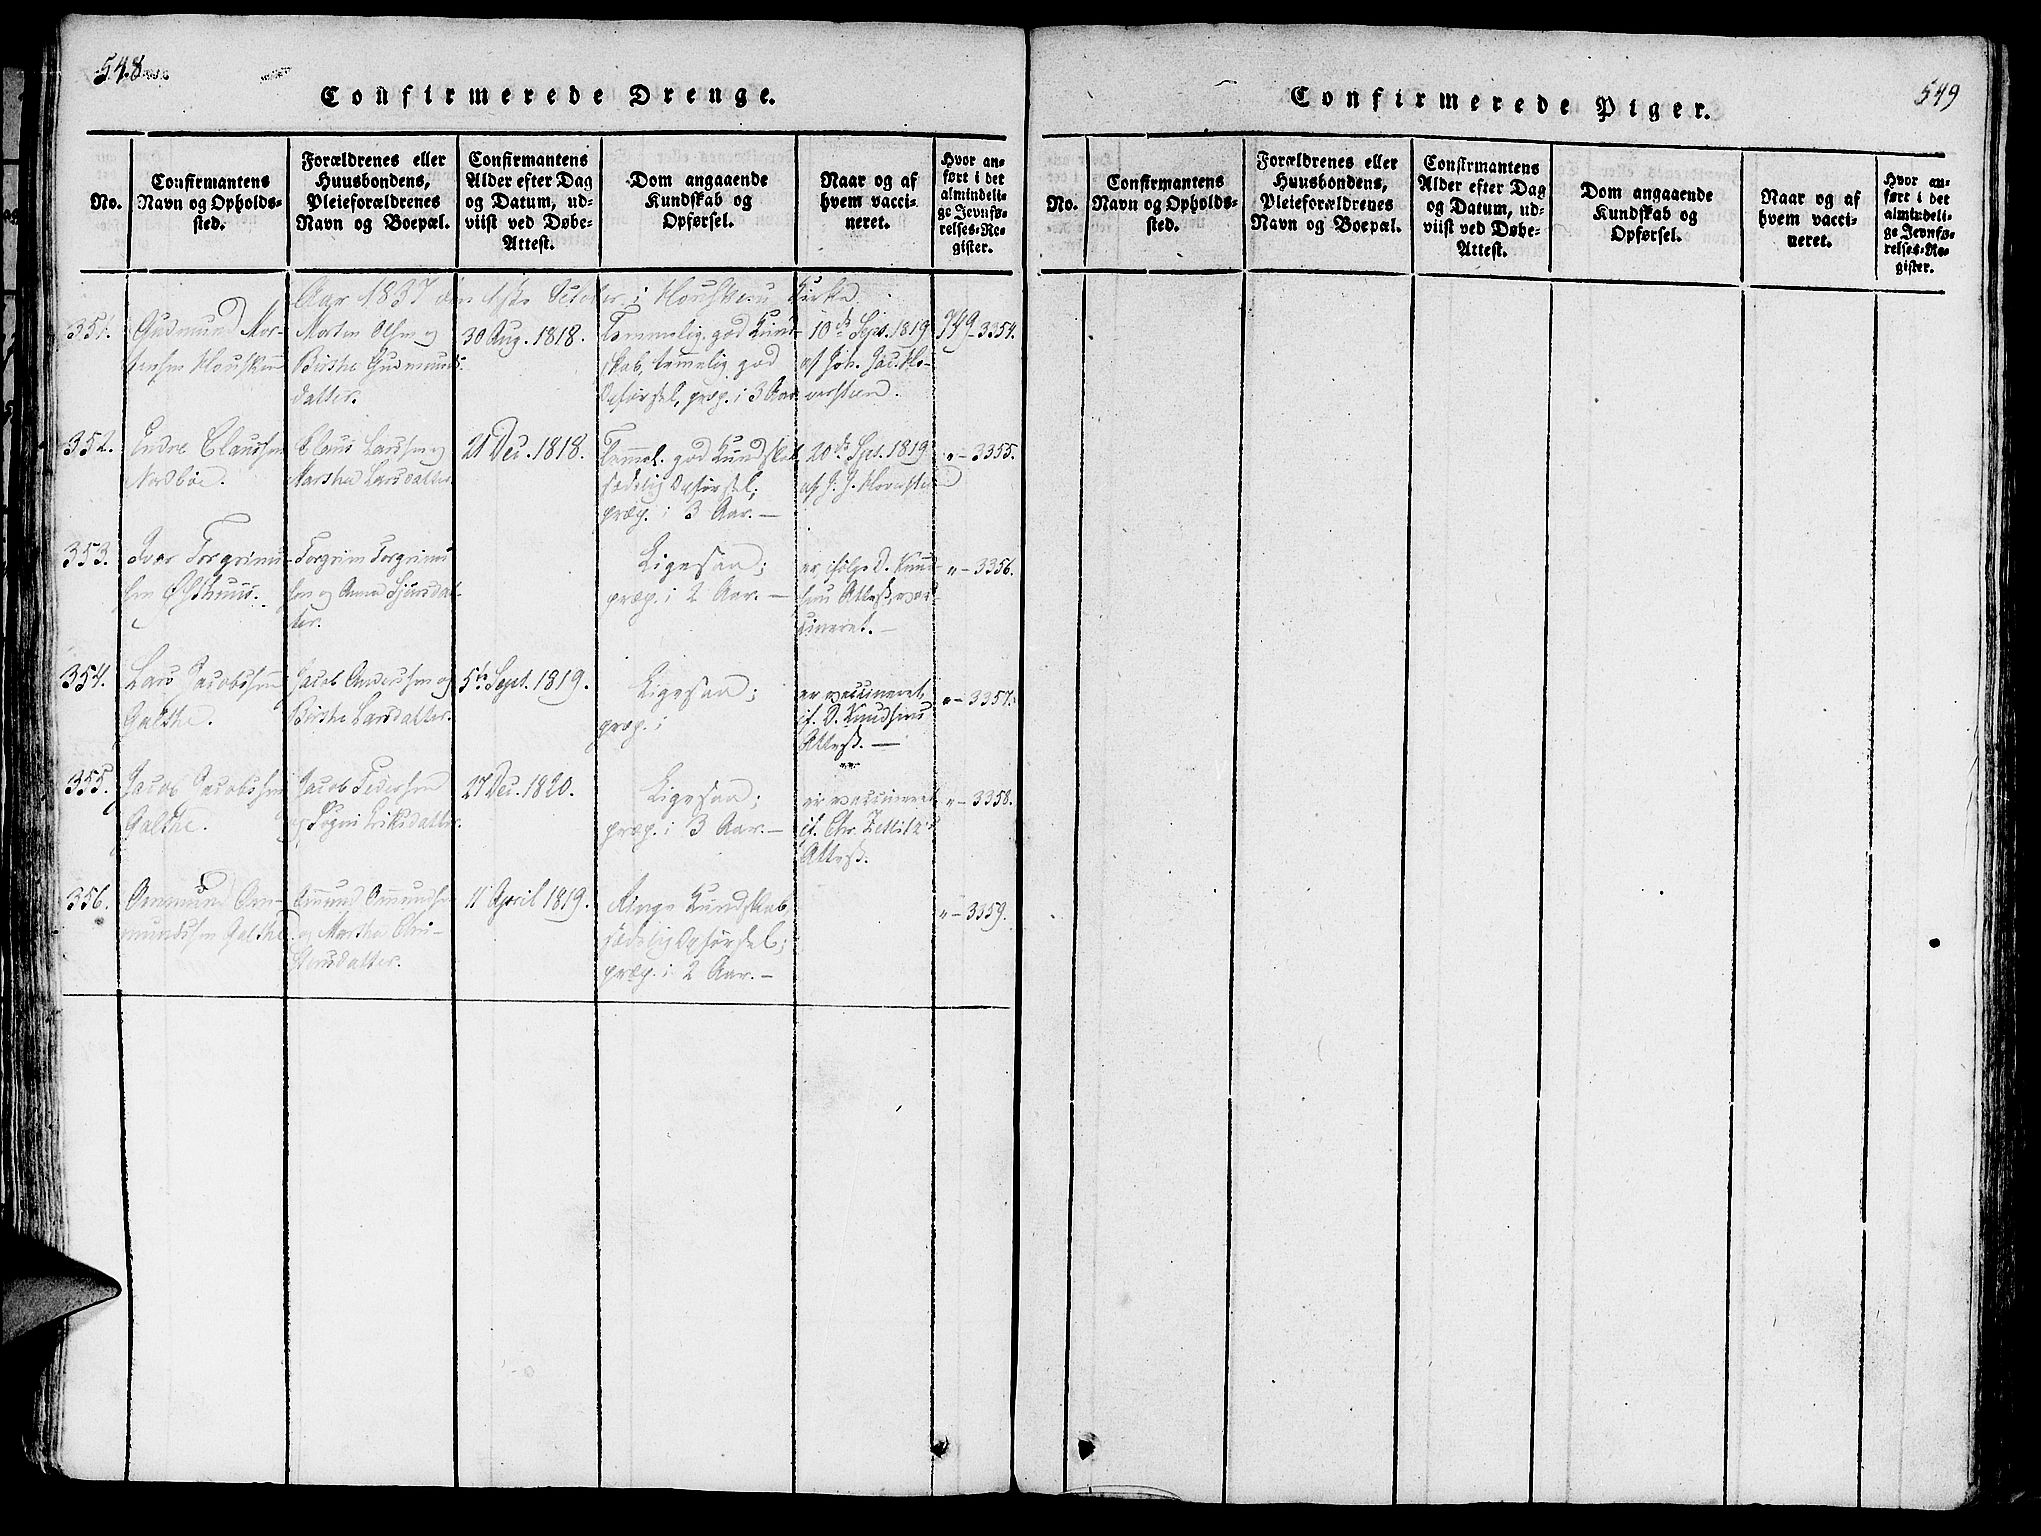 548
Confirmerede Drenge.
No.
Confirmantens
Navn og Opholds-
sted.
Forældrenes eller
Huusbondens,
Pleieforældrenes
Navn og Boepæl.
Confirmantens
Alder efter Dag
og Datum, ud-
viist ved Døbe-
Attest.
Dom angaaende
Kundskab og
Opførsel.
Naar og af
hvem vacci-
neret.
Hvor an-
ført i det
almindeli-
ge Jevnfø-
relses-Re-
gister.
Aar 1837 den 1ste October i Kirke.
351.
Gudmund Mor-
tensen
Morten Olsen og
Birthe Gudmunds-
datter.
30 Aug. 1818.
Temmelig god Kund-
skab, temmelig god
Opførsel, præp. i 3 Aar
10de Sept. 1819
af Joh. Jac.
749-3354.
352.
Endre Claussen
Nordbøe.
Claus Larssen og
Martha Larsdatter.
21 Dec. 1818.
Temmel. god Kundskab
sædelig Opførsel;
præp. i 3 Aar. —
20de Sept. 1819
af J. J.
" - 3355.
353.
Ivar Torgrims-
sen Østhuus.
Torgrim Torgrims-
sen og Anna Sjursdat-
ter.
Ligesaa;
præp. i 2 Aar. —
er ifølge D. Knud-
sens Attest vac-
cineret. —
" - 3356.
354.
Lars Jacobssen
Galthe.
Jacob Anderssen og
Birthe Larsdatter.
5te Sept. 1819.
Ligesaa;
præp. i
er vaccineret
if. D. Knudsens
Attest. —
" - 3357.
355.
Jacob Jacobssen
Galthe.
Jacob Pedersen
og Eriksdatter.
27 Dec. 1820.
Ligesaa;
præp. i 3 Aar. —
er vaccineret
if. Chr. Zetlitz's
Attest.
" - 3358.
356.
Ommund Om-
mundssen Galthe.
Ommund Ommundsen
og Martha Chri-
stensdatter.
11 April 1819.
Ringe Kundskab,
sædelig Opførsel;
præp. i 2 Aar. —
" - 3359.
549
Confirmerede Piger.
No.
Confirmantens
Navn og Opholds-
sted.
Forældrenes eller
Huusbondens,
Pleieforældrenes
Navn og Boepæl.
Confirmantens
Alder efter Dag
og Datum, ud-
viist ved Døbe-
Attest.
Dom angaaende
Kundskab og
Opførsel.
Naar og af
hvem vacci-
neret.
Hvor an-
ført i det
almindeli-
ge Jevnfø-
relses-Re-
gister.